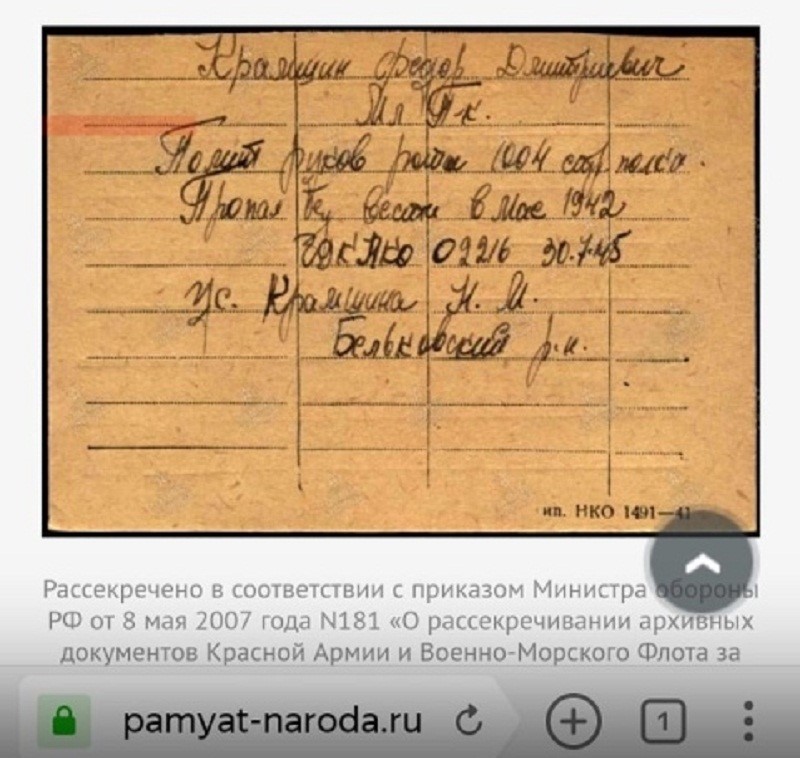 Крамшин Федор Дмитриевич
Мл П-к.
Полит руков роты 1004 стр полка.
Пропал без вести в мае 1942
0226 30.7.45
Крамшина Н. М.
Бельковский р-н.
ип. НКО 1491—41
Рассекречено в соответствии с приказом Министра обороны
РФ от 8 мая 2007 года N181 «О рассекречивании архивных
документов Красной Армии и Военно-Морского Флота за
pamyat-naroda.ru
1